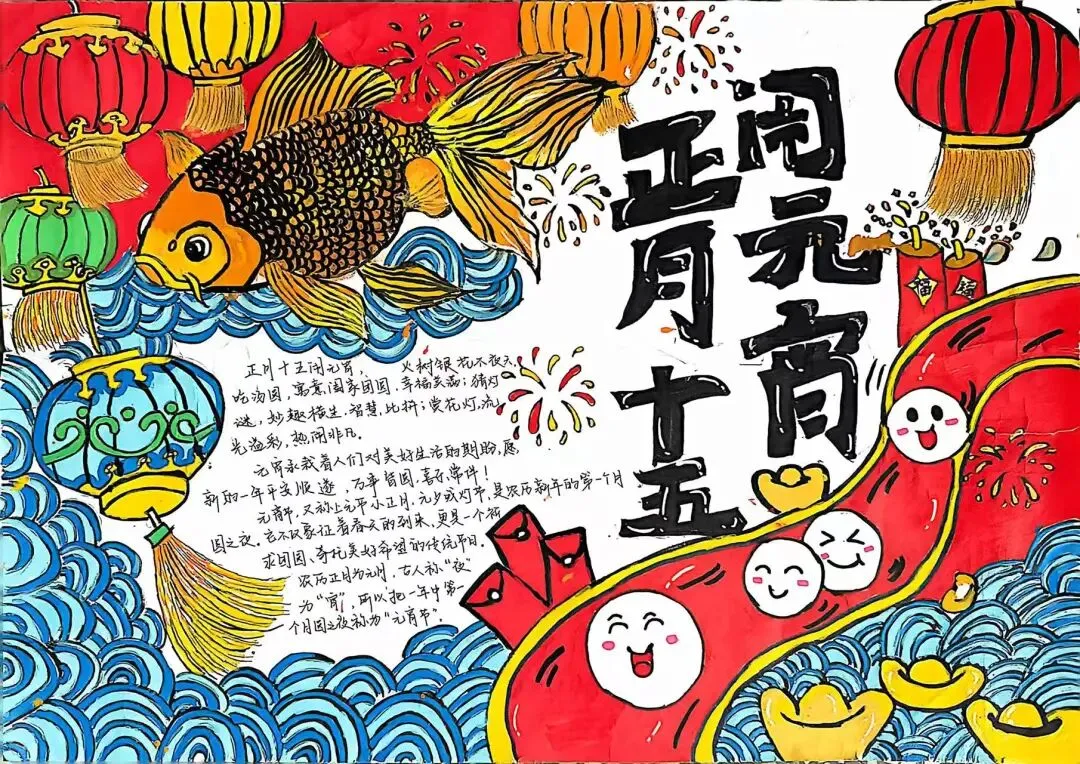 正月十五
闹元宵
福
正月十五闹元宵， 火树银花不夜天
吃汤圆，寓意阖家团圆，幸福美满；猜灯
谜，妙趣横生，智慧比拼；赏花灯，流
光溢彩，热闹非凡。
元宵承载着人们对美好生活的期盼，愿
新的一年平安顺遂，万事皆圆，喜乐常伴！
元宵节，又称上元节小正月、元夕或灯节，是农历新年的第一个月
圆之夜。它不仅象征着春天的到来，更是一个祈
求团圆、寄托美好希望的传统节日。
农历正月为元月，古人称“夜”
为“宵”，所以把一年中第一
个月圆之夜称为“元宵节”。